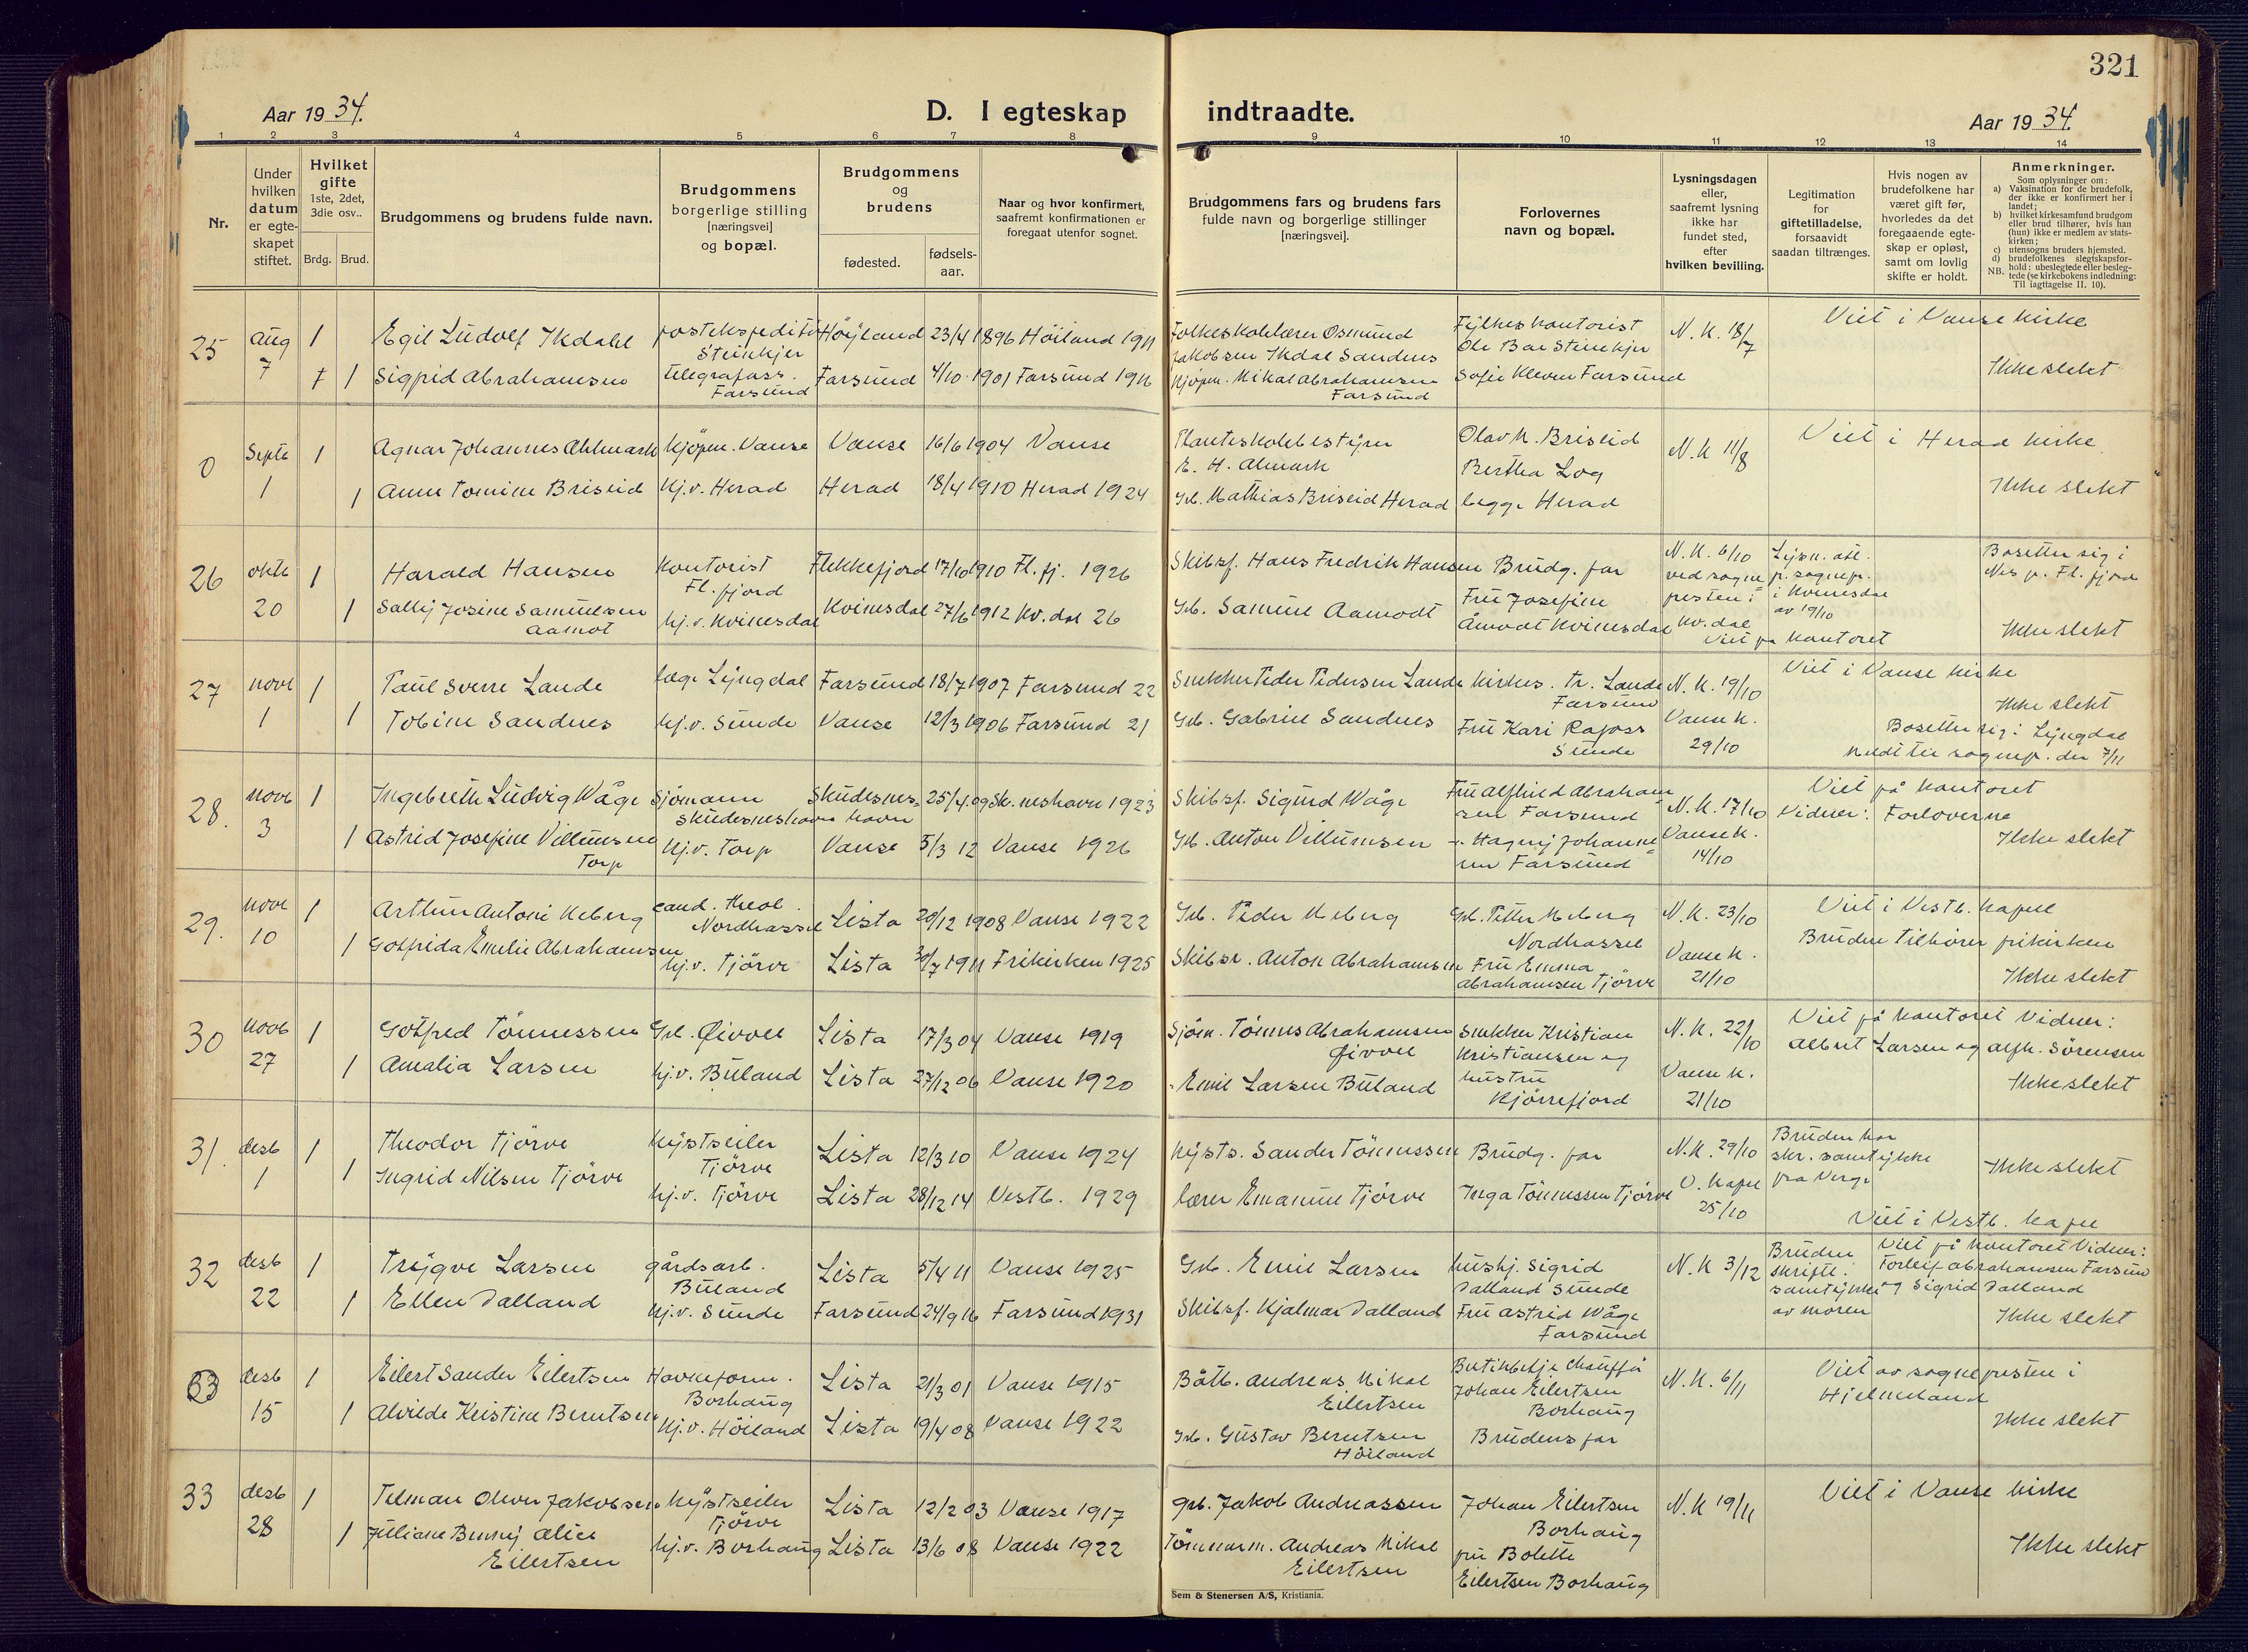 321
Aar 1934.
D. I egteskap indtraadte.
Aar 1934.
1 2 3 4 5 6 7 8 9 10 11 12 13 14
Nr.
Under hvilken datum er egte-skapet stiftet.
Hvilket gifte 1ste, 2det, 3die osv..
Brdg. Brud.
Brudgommens og brudens fulde navn.
Brudgommens borgerlige stilling [næringsvei] og bopæl.
Brudgommens og brudens
fødested.
fødsels-aar.
Naar og hvor konfirmert, saafremt konfirmationen er foregaat utenfor sognet.
Brudgommens fars og brudens fars fulde navn og borgerlige stillinger [næringsvei].
Forlovernes navn og bopæl.
Lysningsdagen eller, saafremt lysning ikke har fundet sted, efter hvilken bevilling.
Legitimation for giftetilladelse, forsaavidt saadan tiltrænges.
Hvis nogen av brudefolkene har været gift før, hvorledes da det foregaaende egte-skap er opløst, samt om lovlig skifte er holdt.
Anmerkninger.
Som oplysninger om:
a) Vaksination for de brudefolk, der ikke er konfirmert her i landet;
b) hvilket kirkesamfund brudgom eller brud tilhører, hvis han (hun) ikke er medlem av stats-kirken;
c) utensogns bruders hjemsted.
d) brudefolkenes slegtskapsfor-hold: ubeslegtede eller besleg-tede (se kirkebokens indledning: Til iagttagelse II. 10).
NB.
25 Aug 7 1 Egil Ludolf Ikdahl postekspeditør Steinkjer Höyland 23/4 1896 Höiland 1911
Folkeskolelærer Osmund Jakobsen Ikdal Sandnes Fylkeskontorist Ole Boe Steinkjer N. K. 18/7 Viet i Vanse kirke
1 Sigrid Abrahamsen telegrafass. Farsund Farsund 4/10 1901 Farsund 1916
Kjöpm. Mikal Abrahamsen Farsund Sofie Kleven Farsund Ikke slekt
0 Septb 1 1 Agnar Johannes Ahlmark Kjöpm. Vanse Vanse 16/6 1904 Vanse
Planteskolebestyrer E. H. Almark Olav M. Briseid Bertha Log N. K 11/8 Viet i Herad kirke
1 Anne Tomine Briseid Hj. v. Herad Herad 18/4 1910 Herad 1924
Gb. Mathias Briseid Herad begge Herad Ikke slekt
26 oktb 20 1 Harald Hansen Kontorist Fl. fjord Flekkefjord 17/10 1910 Fl. fj. 1926
Skibsf. Hans Fredrik Hansen Brudg. far N. K. 6/10 ved sogne presten i Kv. dal Lysn. att. p. sognepr. i Kvinesdal av 19/10 Bosetter sig i Nes p. Fl. fjord
1 Sally Josine Samuelsen Aamot hj. v. Kvinesdal Kvinesdal 27/6 1912 Kv. dal 26
Gb. Samuel Aamodt Fru Josefine Åmodt Kvinesdal Viet på kontoret Ikke slekt
27 novb 1 1 Paul Sverre Lande læge Lyngdal Farsund 18/7 1907 Farsund 22
Snekker Peder Pedersen Lande Kirkes. Tr. Lande Farsund N. K. 19/10 Viet i Vanse kirke
1 Tobine Sandnes hj. v. Sunde Vanse 12/3 1906 Farsund 21
Gb. Gabriel Sandnes Fru Kari Rafoss Sunde Vanse K. 29/10 Ikke slekt
Bosetter sig i Lyngdal meldt til sognep. der 7/11
28. novb 3 1 Ingebreth Ludvig Våge Sjömann Skudesneshavn Skudesneshavn 25/4. 09 Sk. neshavn 1923
Skibsf. Sigurd Våge Fru Alfhild Abrahamsen Farsund N. K. 17/10 Viet på kontoret Vidner: Forloverne
1 Astrid Josefine Villumsen Torp Hj. v. Torp Vanse 5/3 12 Vanse 1926
Gb. Anton Villumsen - Magny Johannesen Farsund Vanse K. 14/10 Ikke slekt
29. novb 10 1 Arthur Antoni Meberg cand. theol. Nordhassel Lista 20/12 1908 Vanse 1922
Gb. Peder Meberg Gb. Petter Meberg Nordhassel N. K. 23/10 Viet i Vestb. kapel
1 Gotfrida Emelie Abrahamsen hj. v. Tjörve Lista 30/7 1911 Frikirken 1925
Skibsr. Anton Abrahamsen Fru Emma Abrahamsen Tjörve Vanse K. 21/10 Bruden tilhører frikirken Ikke slekt
30 novb 27 1 Gotfred Tönnessen Gb. Öivoll Lista 17/3 04 Vanse 1919
Sjöm. Tönnes Abrahamsen Öivoll Snekker Kristian Kristiansen og hustru Kjörrefjord N. K. 22/10 Viet på kontoret Vidner: Albert Larsen og Alfh. Sörensen
1 Amalia Larsen hj. v. Buland Lista 27/12 06 Vanse 1920
- Emil Larsen Buland Vanse K. 21/10 Ikke slekt
31. desb 1 1 Theodor Tjörve Kystseiler Tjörve Lista 12/3 10 Vanse 1924
Kysts. Sander Tönnessen Brudg. far N. K. 29/10 Bruden har skr. samtykke fra Verge Ikke slekt
1 Ingrid Nilsen Tjörve hj. v. Tjörve Lista 28/12 14 Vestb. 1929
lærer Emanuel Tjörve Inga Tönnessen Tjörve V. Kapel 25/10 Viet i Vestb. kapel
32 desb 22 1 Trygve Larsen gårdsarb. Buland Lista 5/4 11 Vanse 1925
Gb. Emil Larsen hushj. Sigrid Dalland Sunde N. K 3/12 Bruden skriftl. samtykke av moren Viet på kontoret Vidner: Torleif Abrahamsen Farsund og Sigrid Dalland
1 Ellen Dalland hj. v. Sunde Farsund 24/9 16 Farsund 1931
Skibsf. Hjalmar Dalland Fru Astrid Våge Farsund Ikke slekt
33 desb 15 1 Eilert Sander Eilertsen Havneform. Borhaug Lista 21/3 01 Vanse 1915
Båtb. Andreas Mikal Eilertsen Johan Eilertsen Borhaug N. K. 6/11 Viet av sognepresten i Hjelmeland
1 Alvilde Kristine Berntsen Hj. v. Höiland Lista 19/4 08 Vanse 1922
Gb. Gustav Berntsen Höiland Brudens far Ikke slekt
33 desb 28 1 Telman Oliver Jakobsen Kystseiler Tjörve Lista 12/2 03 Vanse 1917
gb. Jakob Andreassen Johan Eilertsen Borhaug N. K 19/11 Viet i Vanse kirke
1 Juliane Benny Alice Eilertsen hj. v. Borhaug Lista 13/6 08 Vanse 1922
Tömmerm. Andreas Mikal Eilertsen fru Bolette Eilertsen Borhaug Ikke slekt
Sem & Stenersen A/S, Kristiania.